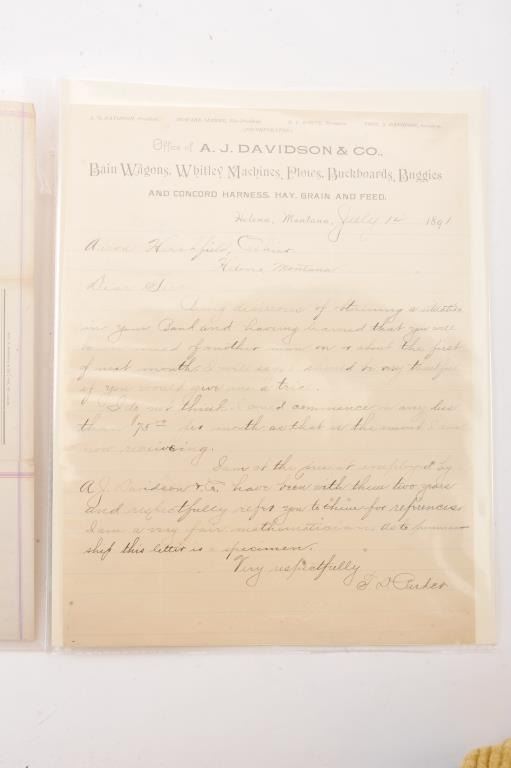 A. J. DAVIDSON, President. HOWARD SEBREE, Vice-President. THOS. A. DAVIDSON,
(INCORPORATED.)
Office of A. J. DAVIDSON & CO.,
Bain Wagons, Whitley Machines, Plows, Buckboards, Buggies
AND CONCORD HARNESS, HAY, GRAIN AND FEED.
Helena, Montana, July 14 1891
Aaron Hirshfield, Cashier
Helena Montana
Dear Sir
Being desireous of obtaining a situation
in your Bank and having learned that you will
be in need of another man on or about the first
of next month I will say I should be very thankful
if you would give me a trial.
I do not think I could commence on any less
than $75.00 per month as that is the amount I am
now receiving.
I am at the present employed by
A. J. Davidson & Co. have been with them two years
and respectfully refer you to them for refrences
I am a very fair mathematician as to penman-
ship this letter is a specimen.
Very respectfully
F D Parker